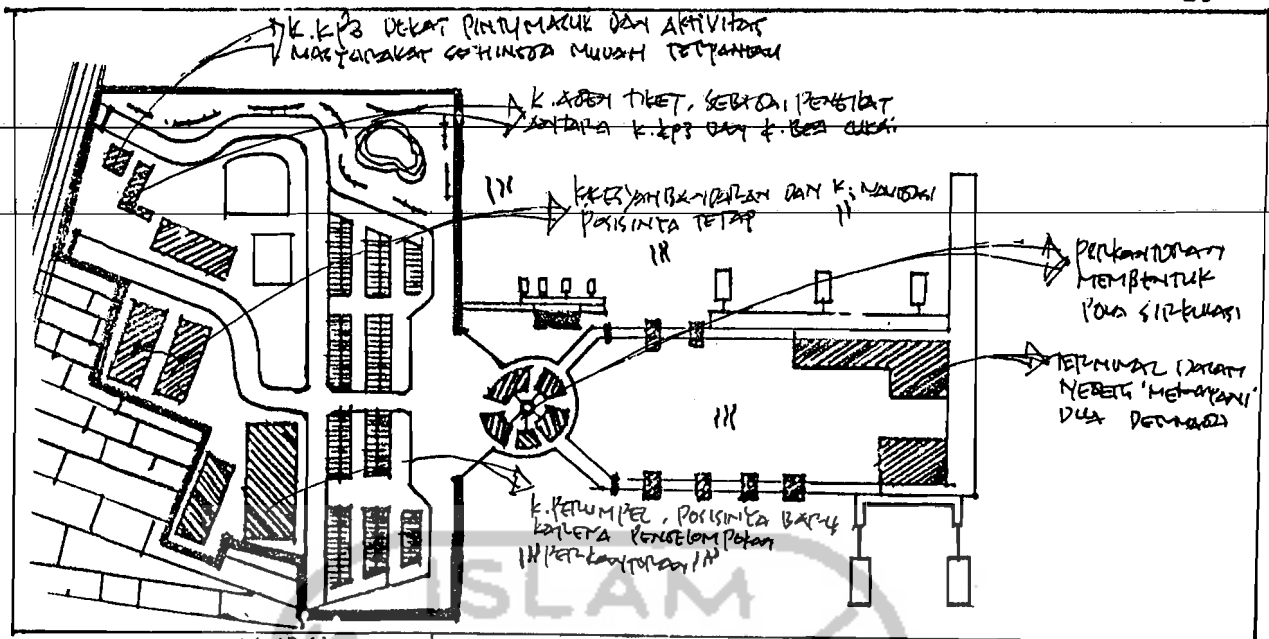 K.KP3 DEKAT PINTU MASUK DAN AKTIVITAS
MASYARAKAT SEHINGGA MUDAH TERPANTAU
K. AGEN TIKET, SEBAGAI PENGIKAT
ANTARA K.KP3 DAN K.BEA CUKAI
K.KESYAHBANDARAN DAN K. NAVIGASI
POSISINYA TETAP
PERKANTORAN
MEMBENTUK
POLA SIRKULASI
TERMINAL DALAM
NEGERI MELAYANI
DUA DERMAGA
K. PERUMPEL, POSISINYA BARU
KARENA PENGELOMPOKAN
PERKANTORAN
ISLAM